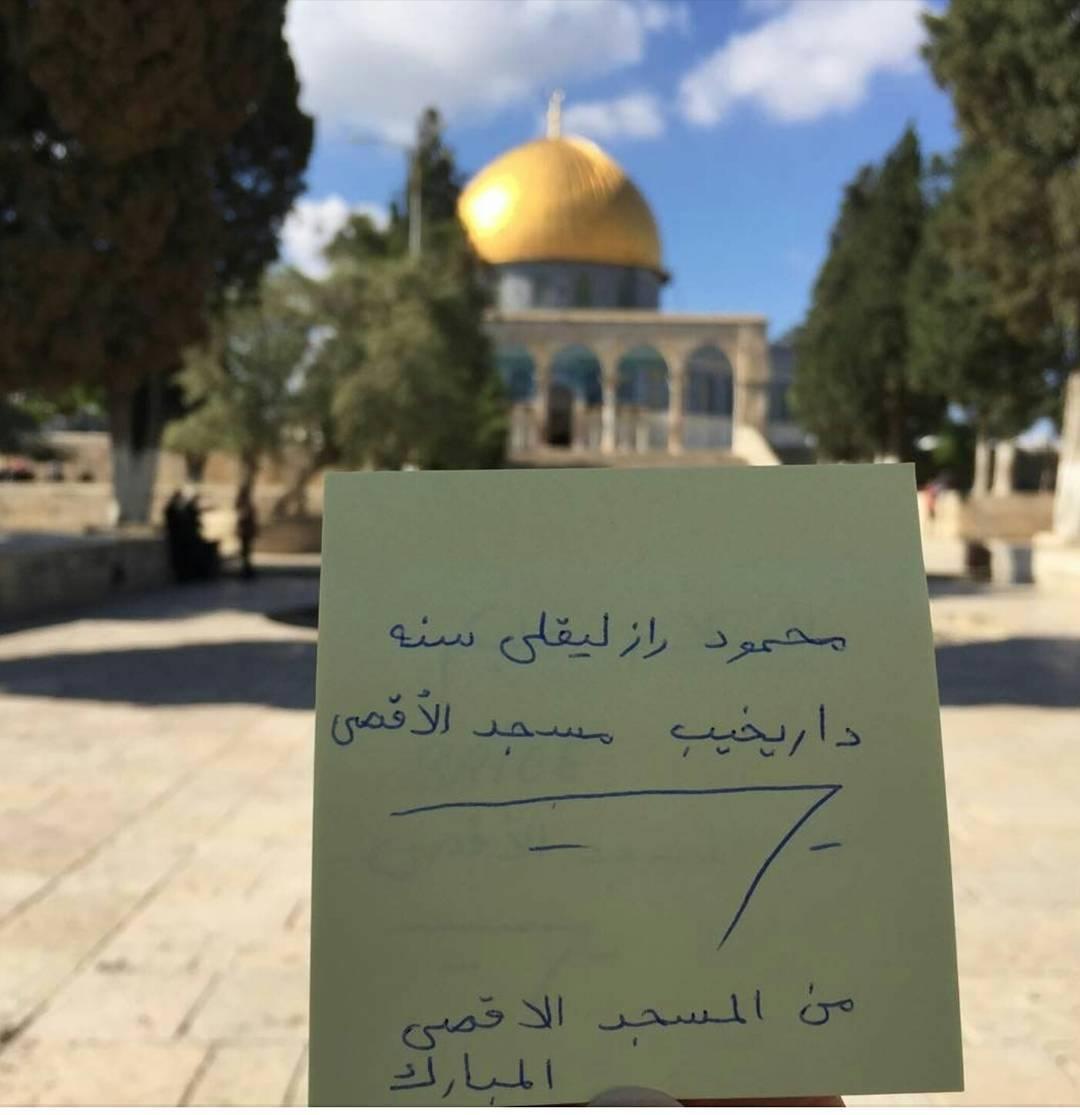 محمود راز ليقلي سنه
داريخيب مسجد الأقصى
من المسجد الاقصى
المبارك